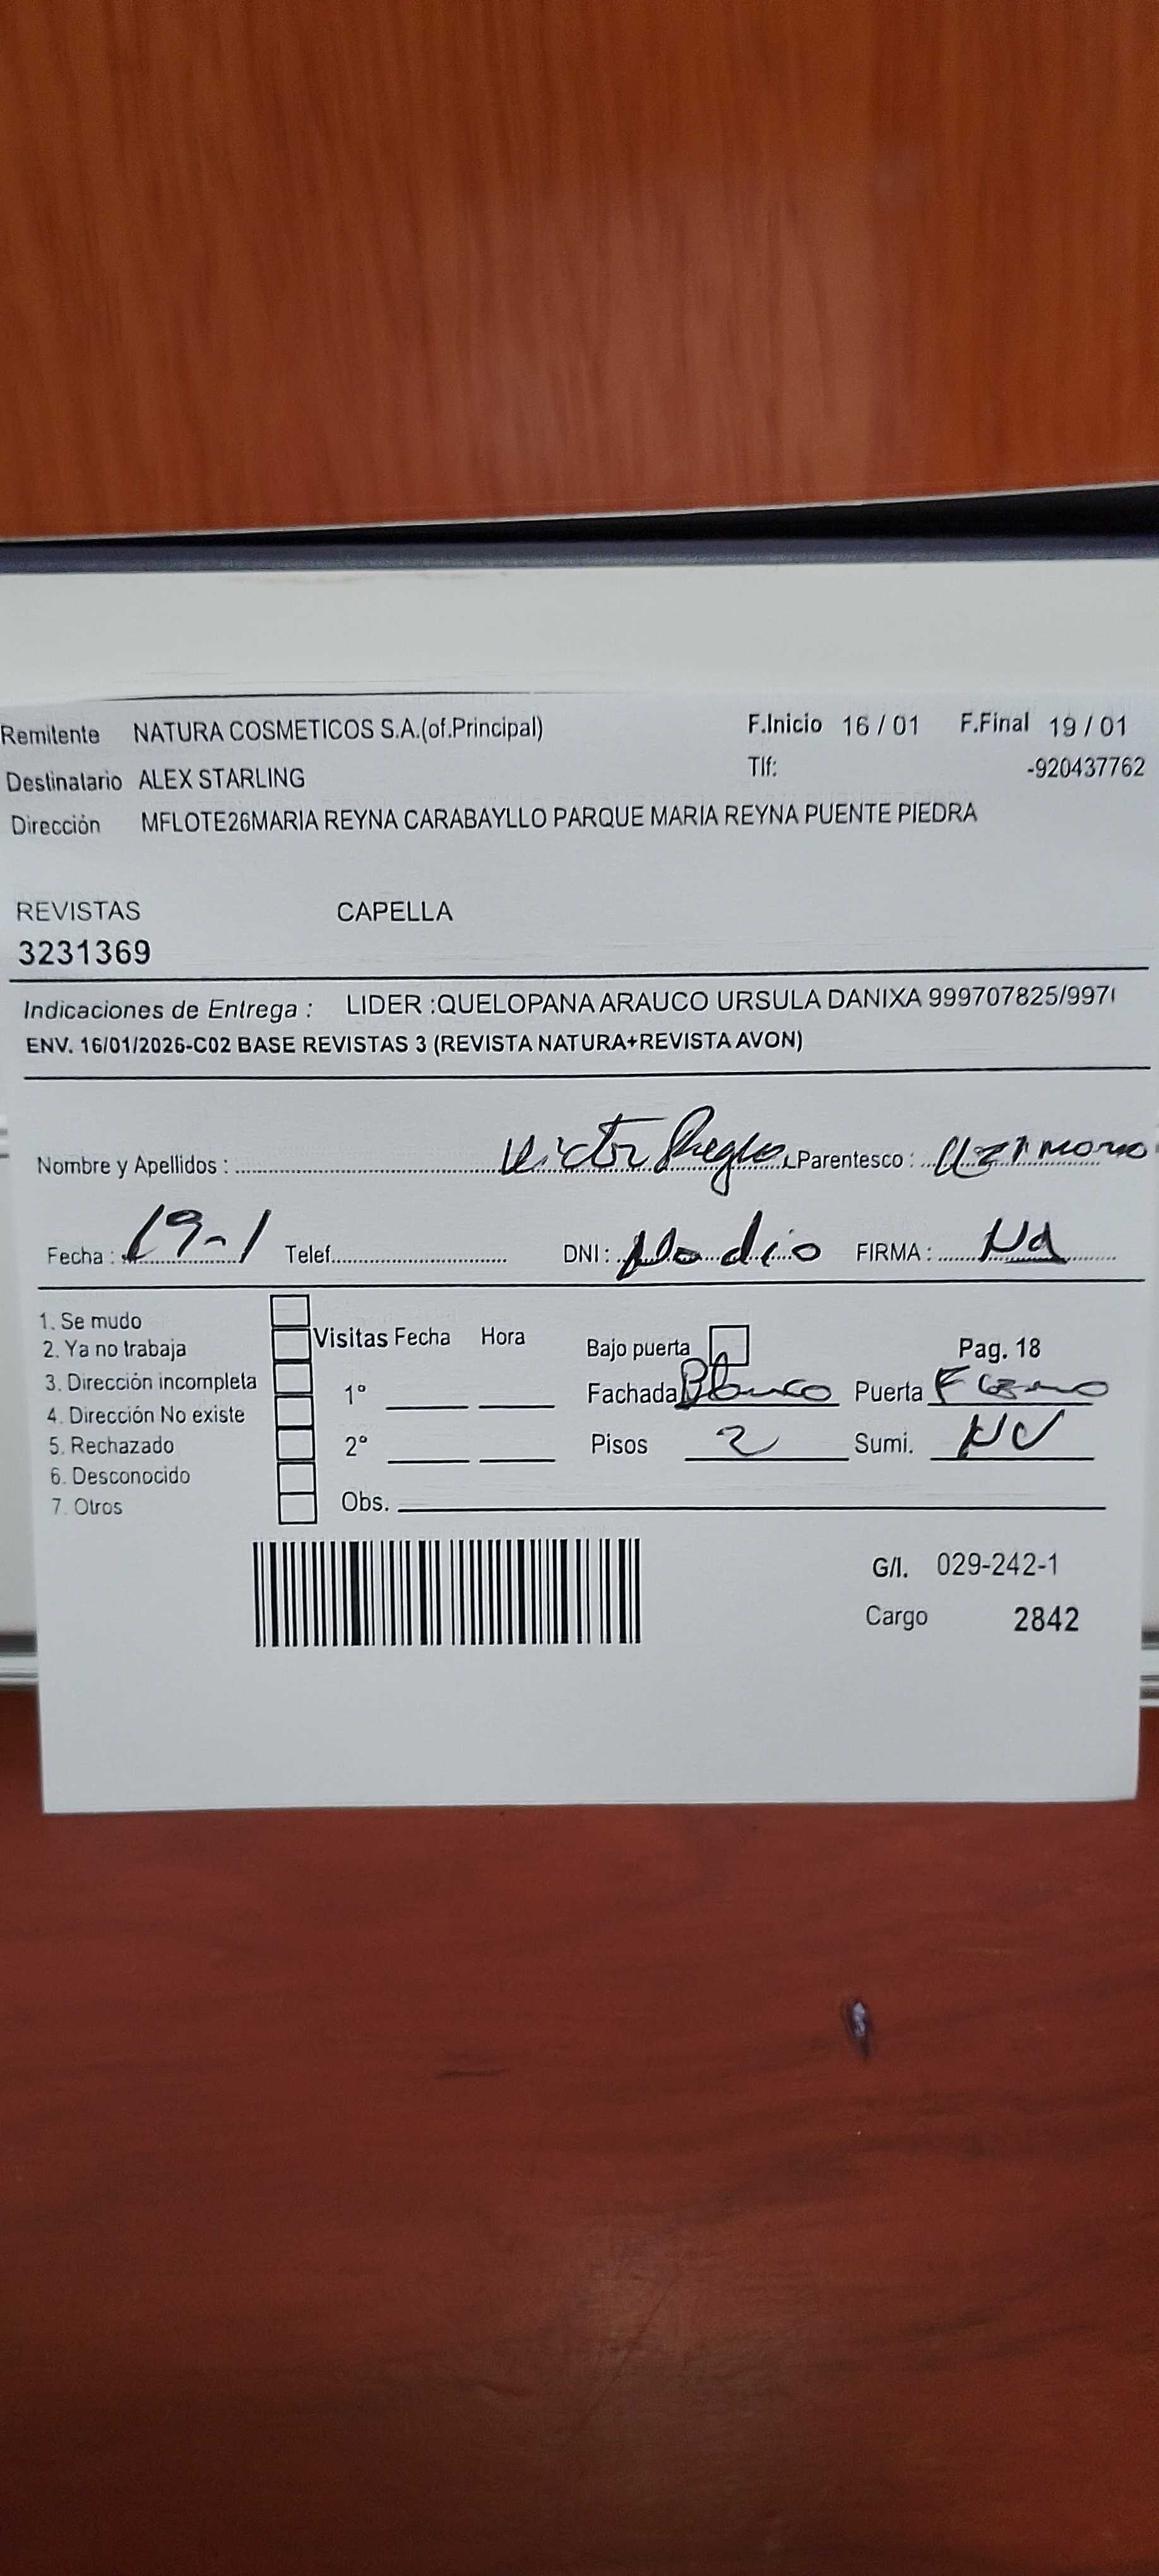 Remitente NATURA COSMETICOS S.A.(of.Principal) F.Inicio 16 / 01 F.Final 19 / 01
Destinatario ALEX STARLING Tlf: -920437762
Dirección MFLOTE26MARIA REYNA CARABAYLLO PARQUE MARIA REYNA PUENTE PIEDRA
REVISTAS CAPELLA
3231369
Indicaciones de Entrega : LIDER :QUELOPANA ARAUCO URSULA DANIXA 999707825/997
ENV. 16/01/2026-C02 BASE REVISTAS 3 (REVISTA NATURA+REVISTA AVON)
Nombre y Apellidos : Victor Parentesco :
Fecha : 19-1 Telef. DNI : No dio FIRMA :
1. Se mudo
2. Ya no trabaja Visitas Fecha Hora Bajo puerta Pag. 18
3. Dirección incompleta 1° Fachada Blanco Puerta
4. Dirección No existe
5. Rechazado 2° Pisos 2 Sumi.
6. Desconocido
7. Otros Obs.
G/I. 029-242-1
Cargo 2842